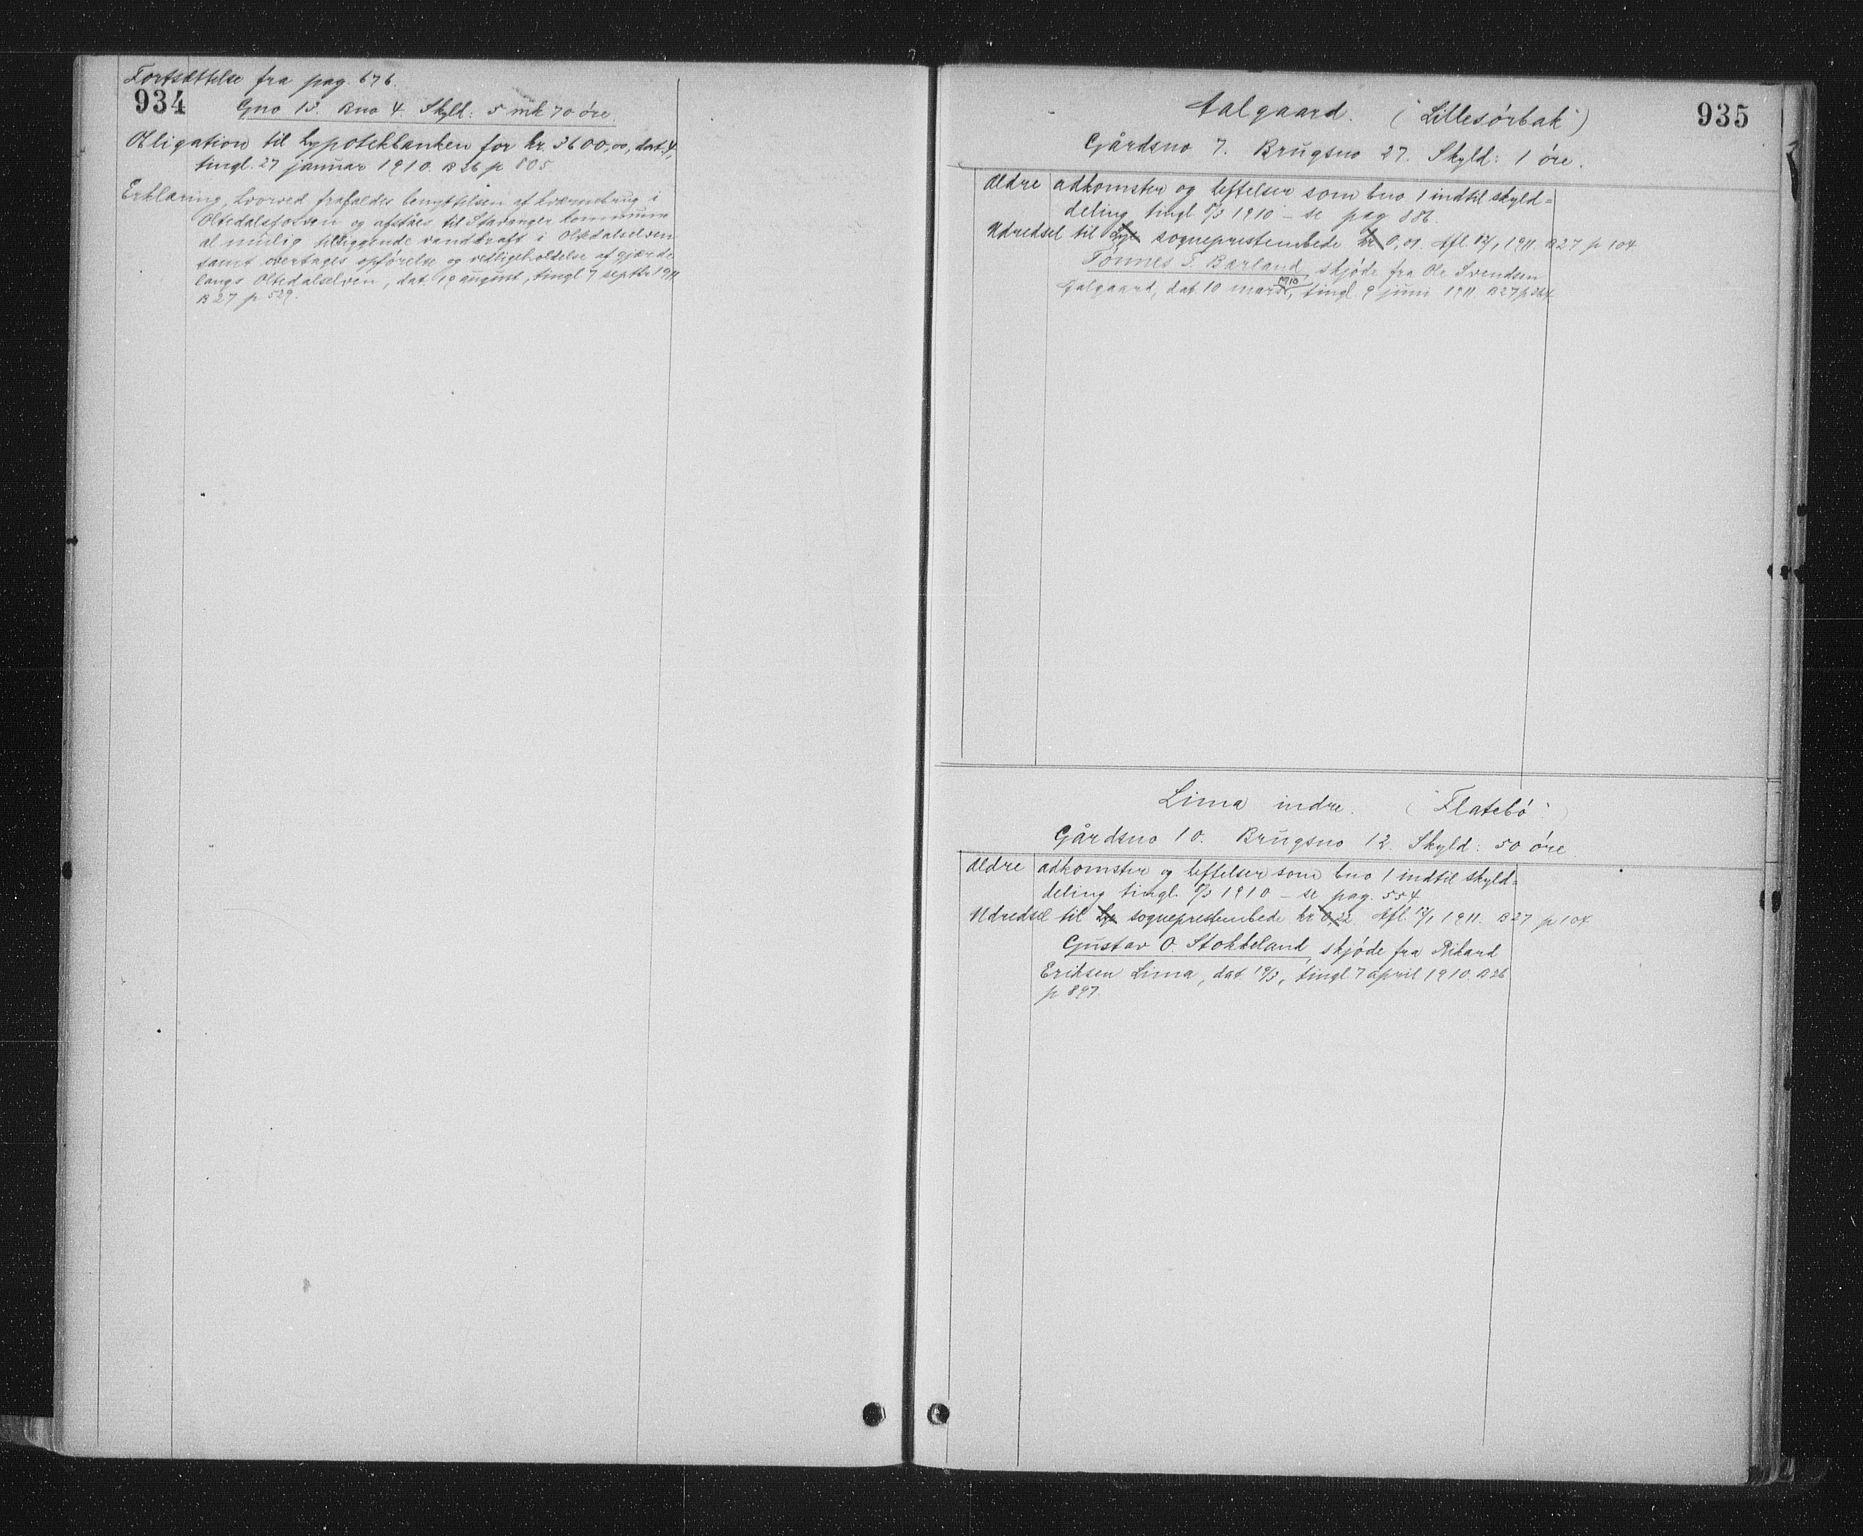 Fortsættelse fra pag 676.
934
Gno 15. Bno 4. Skyld: 5 mk 70 øre
Obligation til hypotekbanken for kr. 3600,00, dat. 4,
tingl. 27 januar 1910. B 26 p 805
Erklæring, hvorved frafaldes benyttelsen af kværnbrug i
Oltedalsfossen og afståes til Stavanger kommune
al mulig tilliggende vandkraft i Oltedalselven
samt overtages opførelse og vedligeholdelse af gjærde
langs Oltedalselven, dat. 19 august, tingl 7 septbr 1911
B 27 p 529.
935
Aalgaard. ("Lillesørbak")
Gårdsno 7. Brugsno 27. Skyld: 1 øre.
Ældre adkomster og heftelser som bno 1 indtil skyld=
deling tingl 8/3 1910 – se pag 886.
Udredsel til Lye sogneprestembede kr 0,01. Afl 17/1 1911. B 27 p 104
Tønnes S. Bærland, skjøde fra Ole Svendsen
Aalgaard, dat. 10 mars 1910, tingl. 9 juni 1911. B 27 p 364
Lima indre. ("Flatebø")
Gårdsno 10. Brugsno 12. Skyld: 50 øre
Ældre adkomster og heftelser som bno 1 indtil skyld=
deling tingl. 8/3 1910 – se pag. 554
Udredsel til Lye sogneprestembede kr 0,22 Afl. 17/1 1911. B 27 p 104
Gustav O. Stokkeland, skjøde fra Rikard
Eriksen Lima, dat. 19/3, tingl 7 april 1910. B 26
p 897.